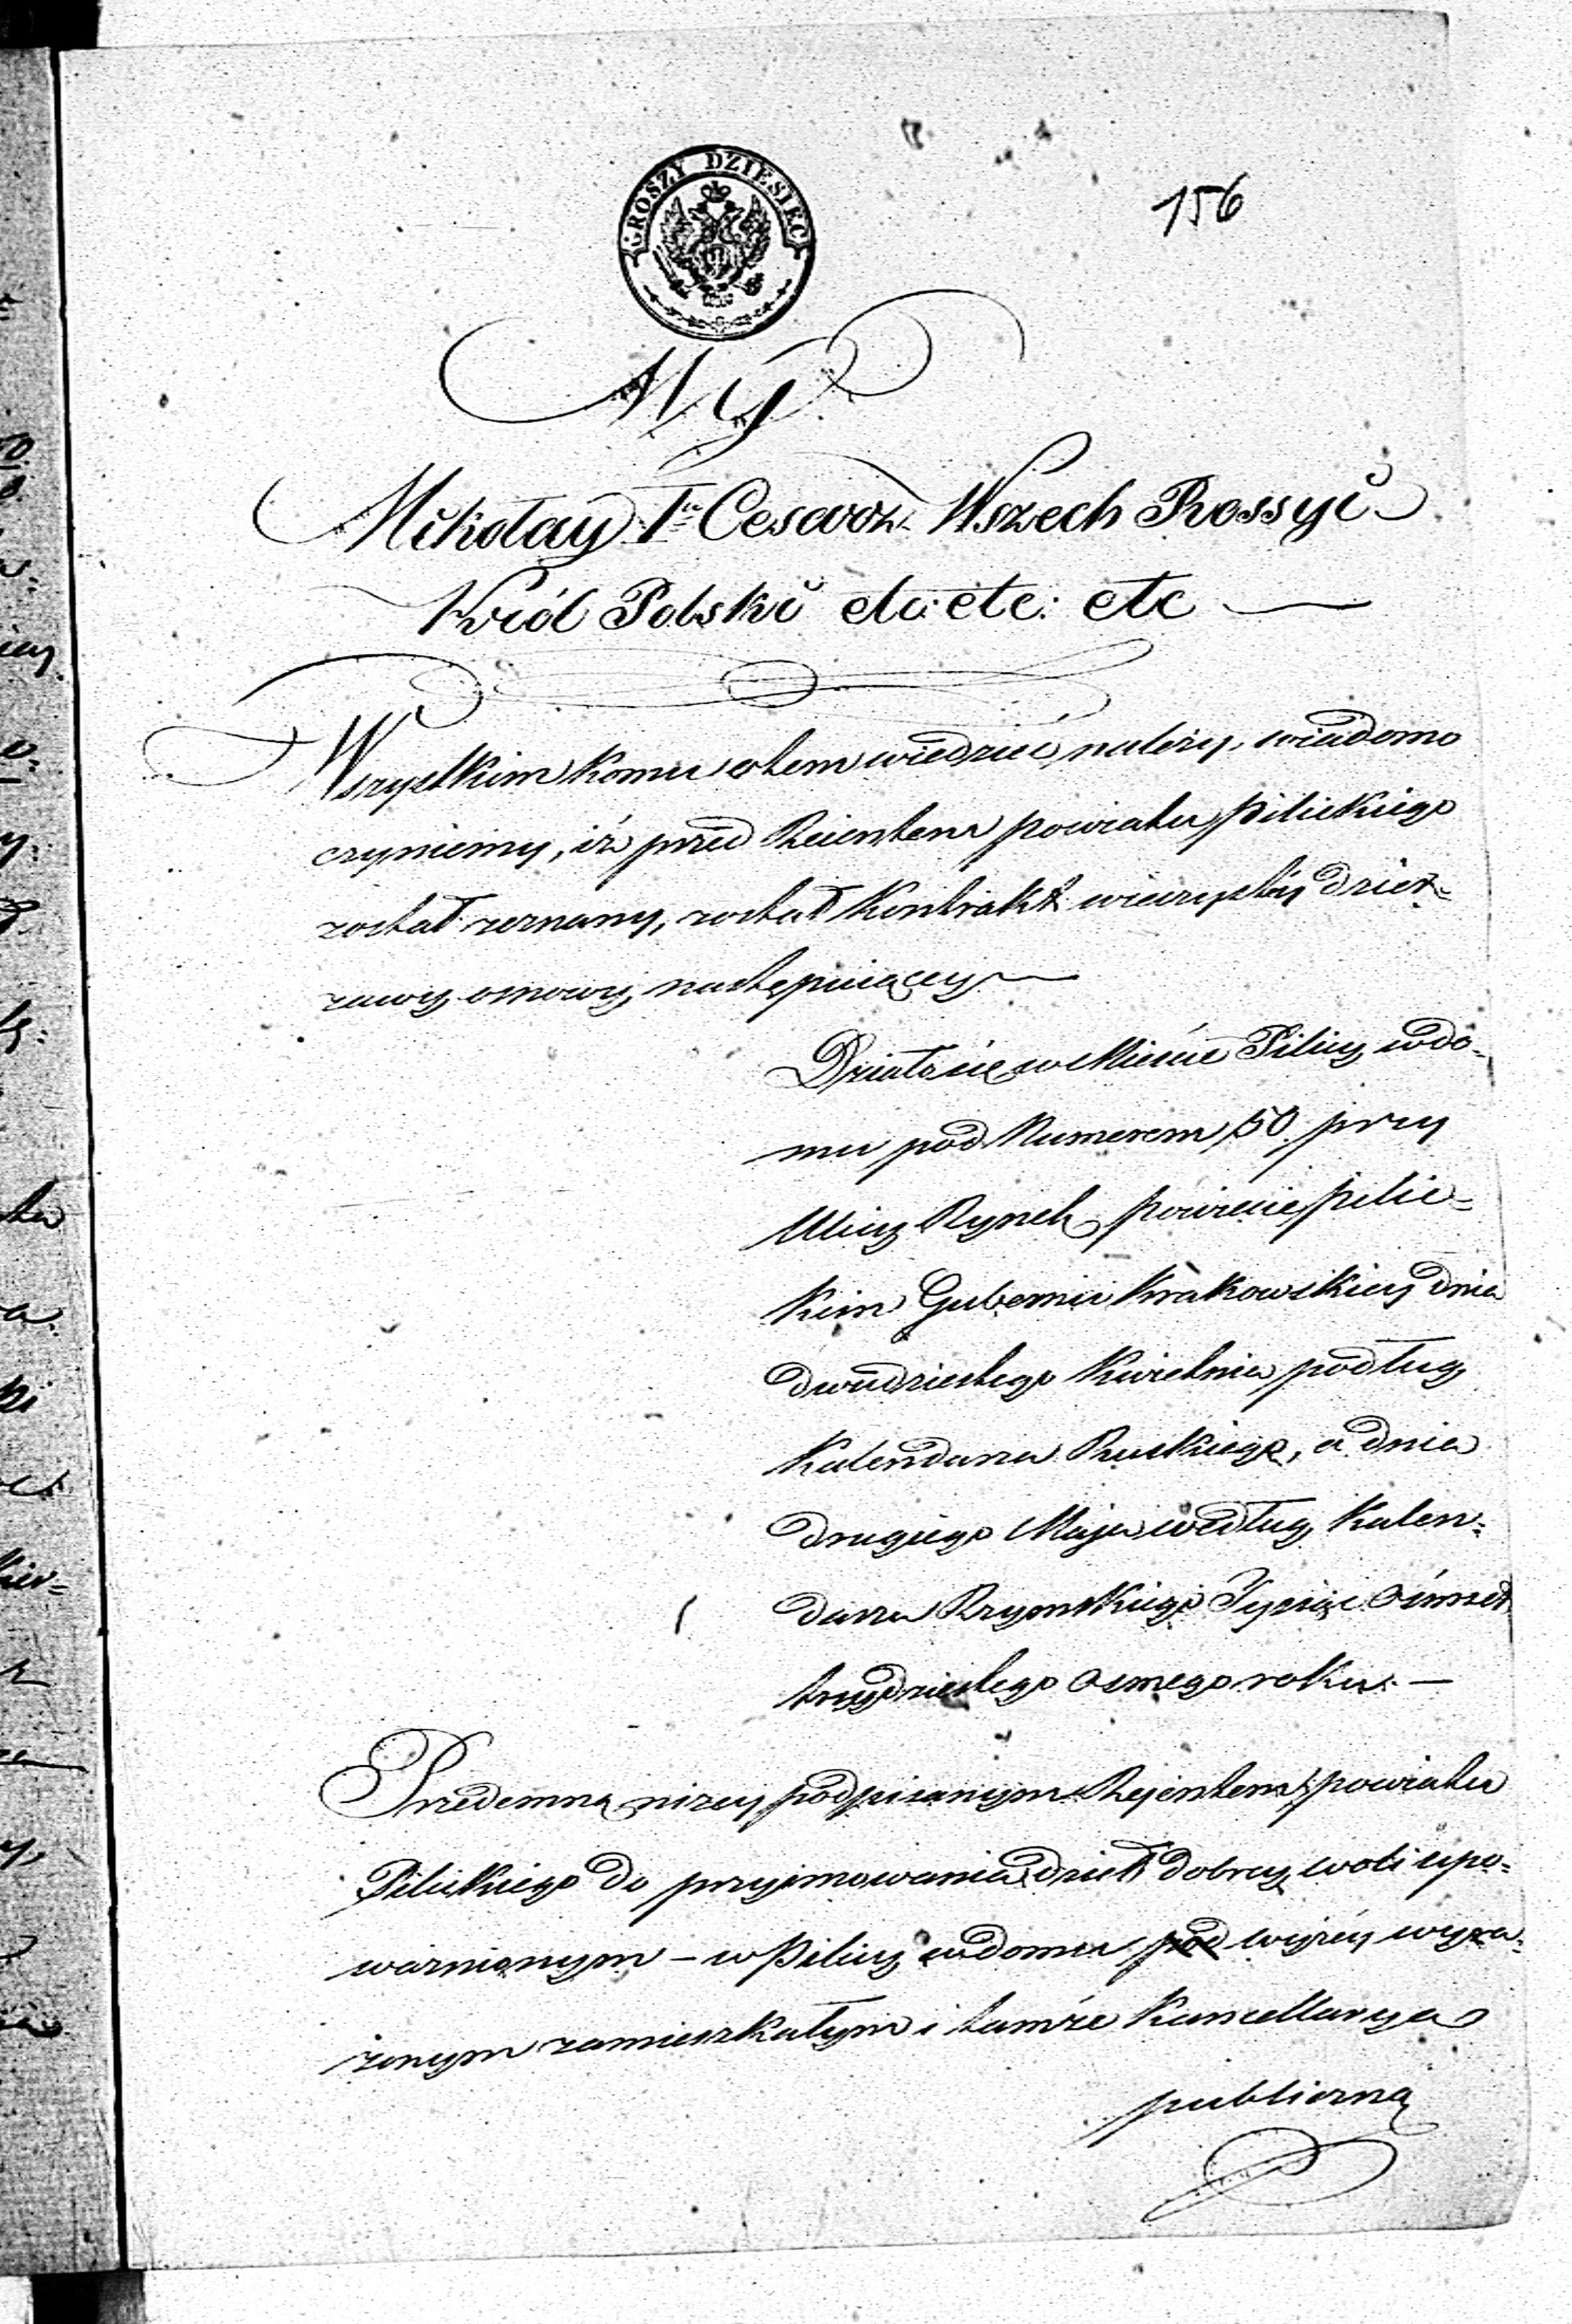 GROSZY DZIESIEC
156
My
Mikołay Iszy Cesarz Wszech Rossyi
Król Polski etc: etc: etc —
Wszystkim komu otem wiedzieć należy, wiadomo
czyniemy, iż przed Reientem powiatu pilickiego
został zeznany, został Kontrakt wieczystéy dzier=
zawy osnowy następuiącey —
Działo się w Mieście Pilicy wdo=
mu pod Numerem 50. przy
Ulicy Rynek powiecie pilic=
kim Gubernii Krakowskiey dnia
dwudziestego Kwietnia podług
Kalendarza Ruskiego, a dnia
drugiego Maja według Kalen=
darza Rzymskiego Tysiąc Ośmset
trzydziestego Osmego roku. —
Przedemną niżey podpisanym Rejentem powiatu
Pilickiego do przyjmowania dzieł dobrey woli upo=
ważnionym – w Pilicy w domu pod wyżéy wyra=
żonym zamieszkałym i tamże Kancellarya
publiczną